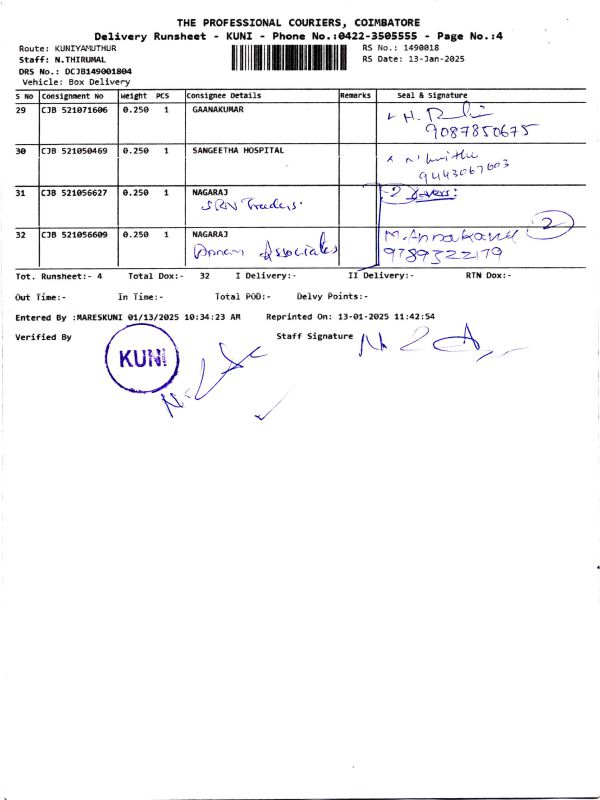 THE PROFESSIONAL COURIERS, COIMBATORE
Delivery Runsheet - KUNI - Phone No.:0422-3505555 - Page No.:4
Route: KUNIYAMUTHUR RS No.: 1490018
Staff: N.THIRUMAL RS Date: 13-Jan-2025
DRS No.: DCJB149001804
Vehicle: Box Delivery
S No Consignment No Weight PCS Consignee Details Remarks Seal & Signature
29 CJB 521071606 0.250 1 GAANAKUMAR
9087850675
30 CJB 521050469 0.250 1 SANGEETHA HOSPITAL
9443067603
31 CJB 521056627 0.250 1 NAGARAJ
SRN Traders. 2 covers:
32 CJB 521056609 0.250 1 NAGARAJ 2
Annam Associates 9789322179
Tot. Runsheet:- 4 Total Dox:- 32 I Delivery:- II Delivery:- RTN Dox:-
Out Time:- In Time:- Total POD:- Delvy Points:-
Entered By :MARESKUNI 01/13/2025 10:34:23 AM Reprinted On: 13-01-2025 11:42:54
Verified By Staff Signature
KUNI